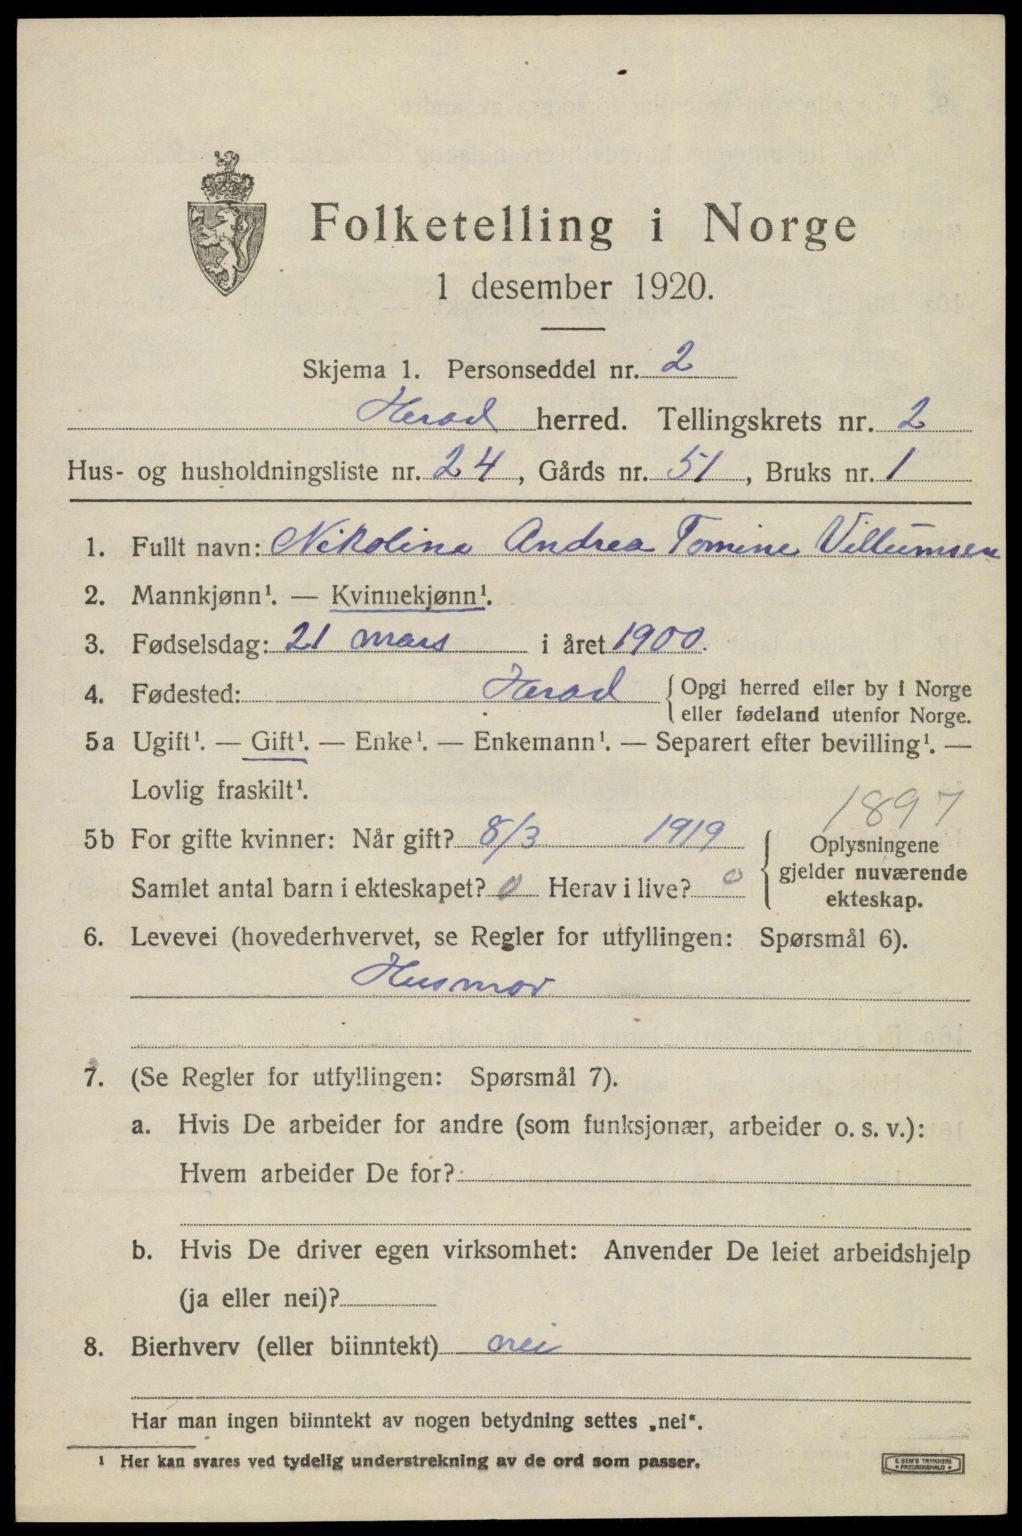 Folketelling i Norge
1 desember 1920.
Skjema 1. Personseddel nr. 2
Herad herred. Tellingskrets nr. 2
Hus- og husholdningsliste nr. 24, Gårds nr. 51, Bruks nr. 1
1. Fullt navn: Nikoline Andrea Tomine Villumsen
2. Mannkjønn¹. — Kvinnekjønn¹.
3. Fødselsdag: 21 mars i året 1900.
4. Fødested: Herad { Opgi herred eller by i Norge
eller fødeland utenfor Norge.
5a Ugift¹. — Gift¹. — Enke¹. — Enkemann¹. — Separert efter bevilling¹. —
Lovlig fraskilt¹.
1897
5b For gifte kvinner: Når gift? 8/3 1919
Samlet antal barn i ekteskapet? 0 Herav i live? 0
{ Oplysningene
gjelder nuværende
ekteskap.
6. Levevei (hovederhvervet, se Regler for utfyllingen: Spørsmål 6).
Husmor
7. (Se Regler for utfyllingen: Spørsmål 7).
a. Hvis De arbeider for andre (som funksjonær, arbeider o. s. v.):
Hvem arbeider De for?
b. Hvis De driver egen virksomhet: Anvender De leiet arbeidshjelp
(ja eller nei)?
8. Bierhverv (eller biinntekt) nei
Har man ingen biinntekt av nogen betydning settes „nei“.
¹ Her kan svares ved tydelig understrekning av de ord som passer.
E. SEM'S TRYKKERI
* FREDRIKSHALD *